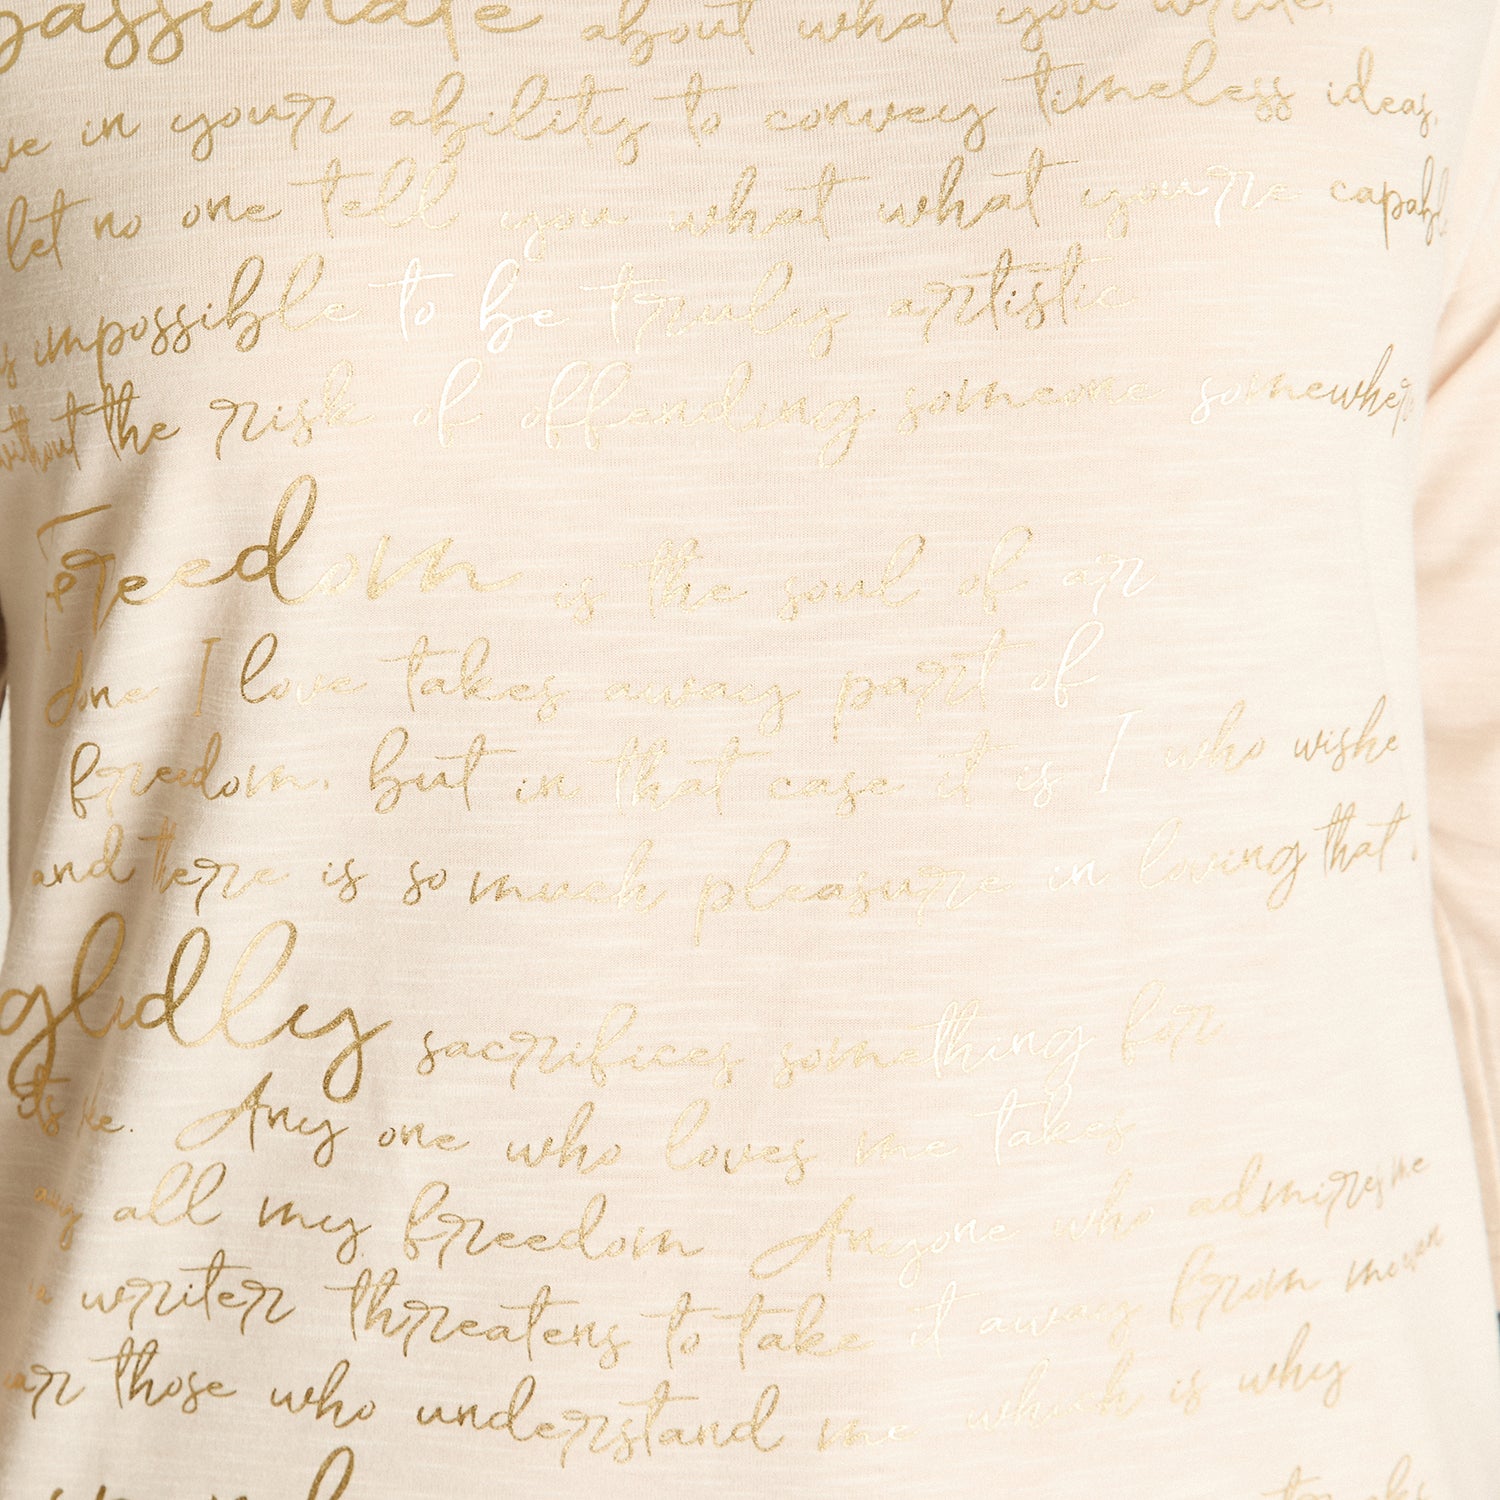 passionate about what you write
ve in your ability to convey timeless ideas,
let no one tell you what what you're capabl
is impossible to be truly artistic
without the risk of offending someone somewhere
Freedom is the soul of ar
done I love takes away part of
freedom. but in that case it is I who wishe
and there is so much pleasure in loving that
gladly sacrifices something for
its ke. Any one who loves me takes
all my freedom Anyone who admires me
writer threatens to take it away from me
those who understand me which is why